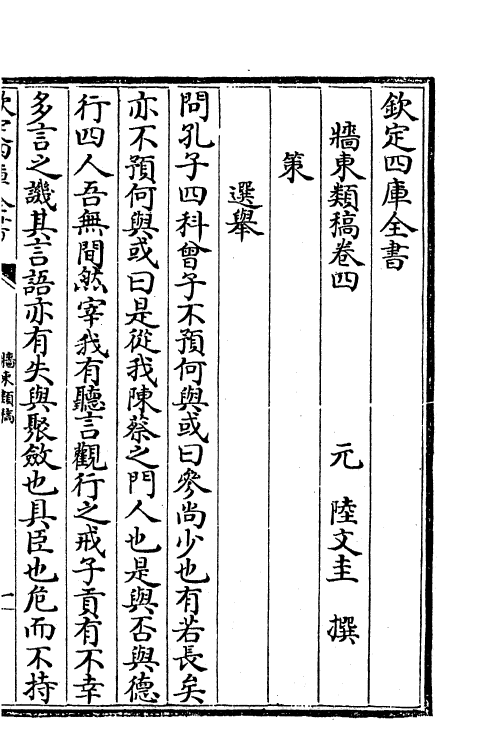 欽定四庫全書
牆東類稿卷四
元 陸文圭 撰
策
選舉
問孔子四科曾子不預何與或曰參尚少也有若長矣
亦不預何與或曰是從我陳蔡之門人也是與否與德
行四人吾無間然宰我有聽言觀行之戒子貢有不幸
多言之譏其言語亦有失與聚斂也具臣也危而不持
欽定四庫全書
牆東類稿
一